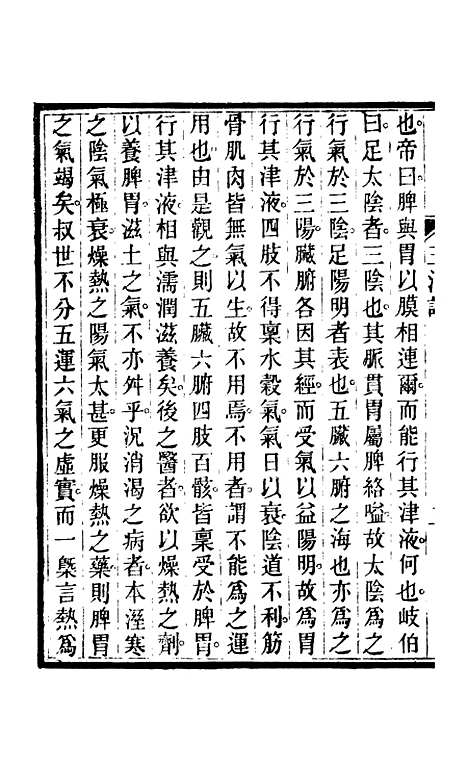 也。帝曰。脾與胃以膜相連爾。而能行其津液。何也。岐伯
曰。足太陰者。三陰也。其脈貫胃屬脾絡嗌。故太陰爲之
行氣於三陰。足陽明者表也。五臟六腑之海也。亦爲之
行氣於三陽。臟腑各因其經而受氣以益陽明。故爲胃
行其津液。四肢不得稟水穀氣。氣日以衰。陰道不利。筋
骨肌肉皆無氣以生。故不用焉。不用者。謂不能爲之運
用也。由是觀之。則五臟六腑四肢百骸。皆稟受於脾胃。
行其津液。相與濡潤滋養矣。後之醫者。欲以燥熱之劑。
以養脾胃。滋土之氣。不亦舛乎。況消渴之病者。本溼寒
之陰氣極衰。燥熱之陽氣太甚。更服燥熱之藥。則脾胃
之氣竭矣。叔世不分五運六氣之虛實。而一槩言熱爲